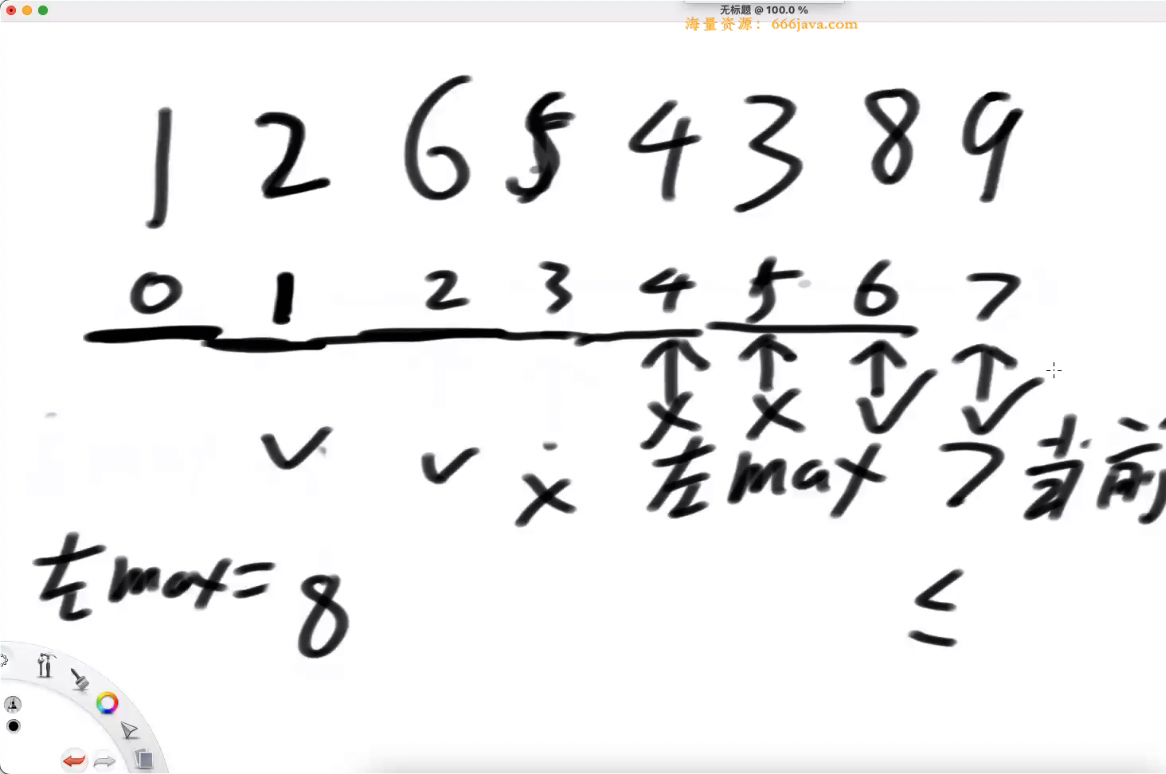 无标题 @ 100.0 %
海量资源：666java.com
1 2 6 5 4 3 8 9
0 1 2 3 4 5 6 7
↑ ↑ ↑ ↑
✓ ✓ x x x ✓ ✓
左max > 当前
左max = 8
≤